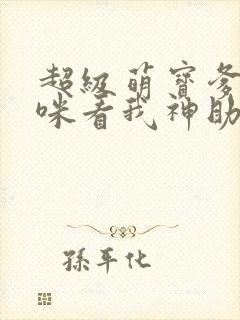 超级萌宝爹
咪看我神助
孫平化